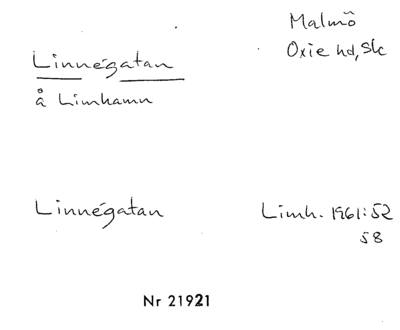 Malmö
Oxie hd, Sk
Linnégatan
å Limhamn
Linnégatan
Limh. 1961:52
58
Nr 21921